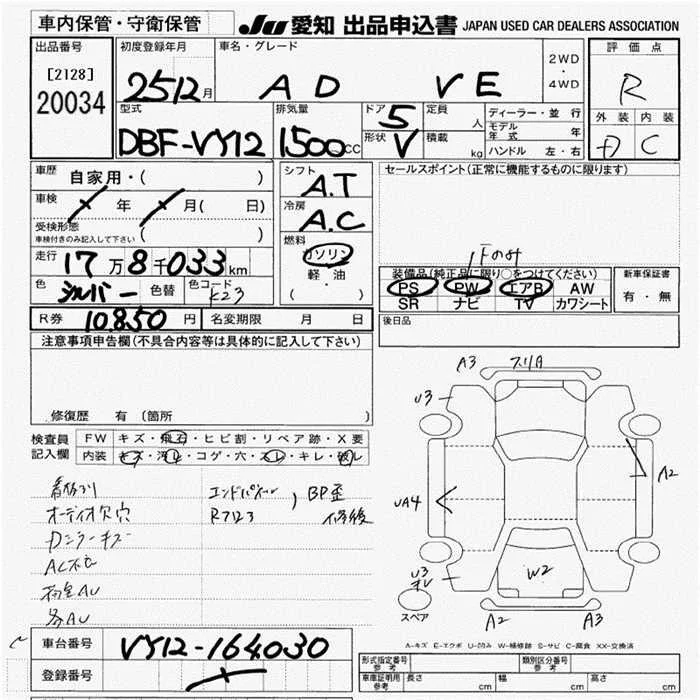 車内保管・守衛保管
JU 愛知 出品申込書 JAPAN USED CAR DEALERS ASSOCIATION
出品番号
[2128]
20034
初度登録年月
2512月
車名・グレード
AD VE
2WD
・
4WD
評価点
R
外装 内装
D C
型式
DBF-VY12
排気量
1500cc
ドア 5
形状 V
定員 人
積載 kg
ディーラー・並行
モデル年式 年
ハンドル 左・右
車歴 自家用・( )
車検 年 月( 日)
受検形態
車検付きのみ記入して下さい ( )
走行 17万8千033km
色 シルバー 色替 色コード K23
シフト
A.T
冷房
A.C
燃料
ガソリン
軽・油
( ・ )
セールスポイント(正常に機能するものに限ります)
Fのみ
装備品(純正品に限り○をつけてください)
PS PW エアB AW
SR ナビ TV カワシート
新車保証書
有・無
後日品
R券 10.850円 名変期限 月 日
注意事項申告欄(不具合内容等は具体的に記入して下さい)
修復歴 有(箇所
検査員
記入欄
FW キズ・飛石・ヒビ割・リペア跡・X要
内装 キズ・汚レ・コゲ・穴・スレ・キレ・破レ
オーディオ欠穴
Dミラーキズ
エンドパネル
R7123
BP歪
修後
各AU
A3 スリA
U3
A2
UA4
U3
W2
スペア
A2 A3
A-キズ E-エクボ U-凹み W-補修跡 S-サビ C-腐食 XX-交換済
車台番号 VY12-164030
登録番号
型式指定番号
参考
類別区分番号
参考
車庫証明用
参考
長さ cm 幅 cm 高さ cm